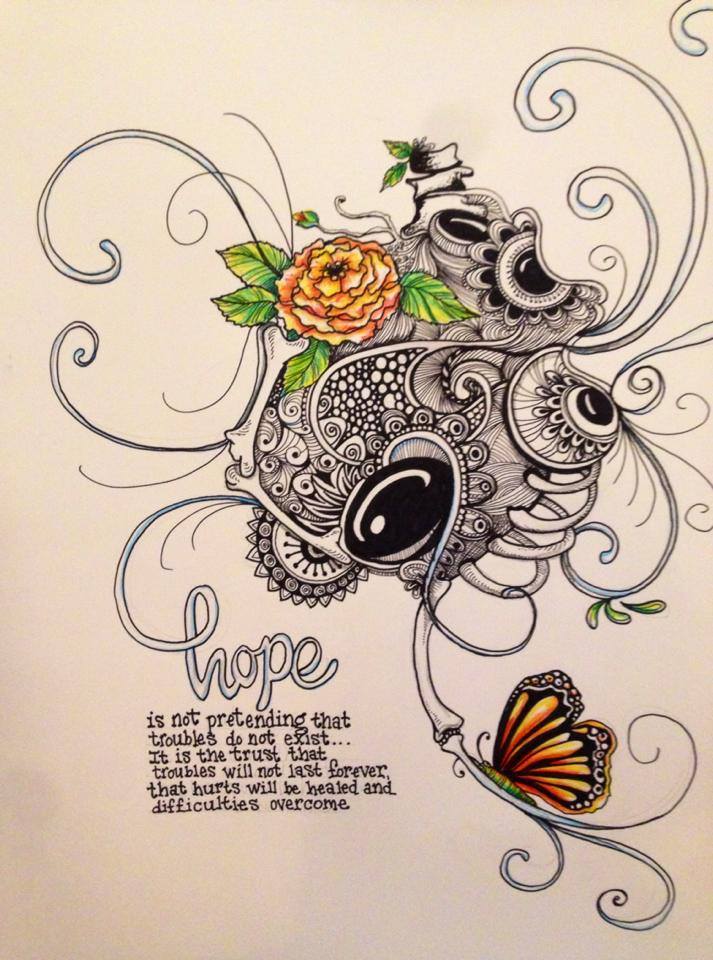 hope
is not pretending that
troubles do not exist...
It is the trust that
troubles will not last forever,
that hurts will be healed and
difficulties overcome